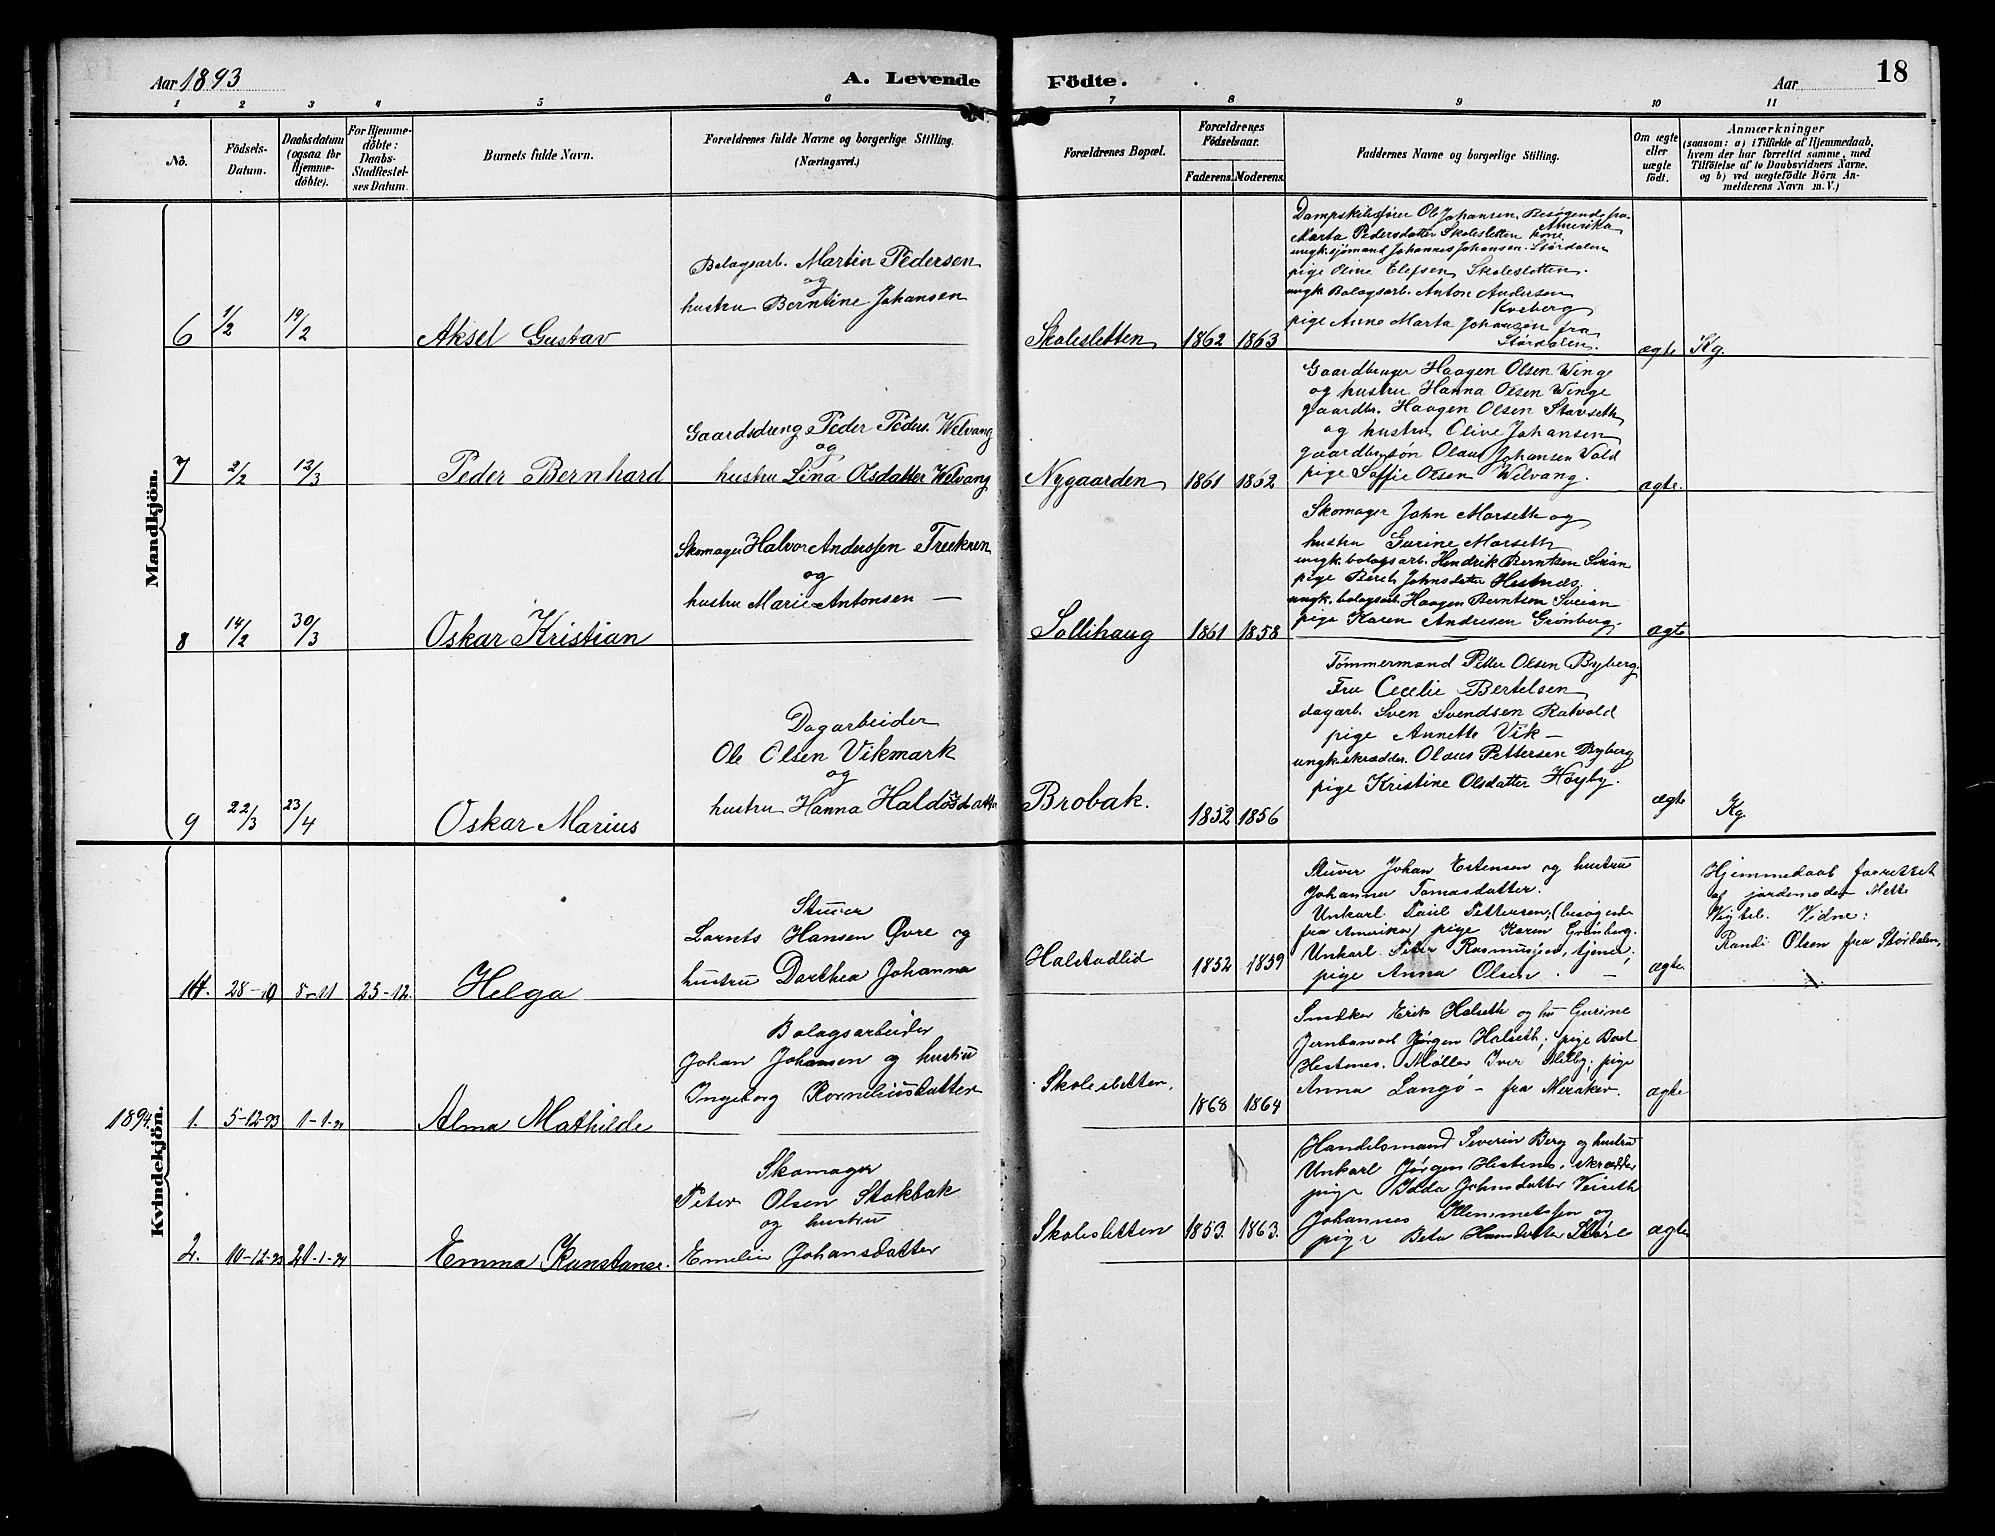 Aar 1893
A. Levende Födte.
Aar
18
1 2 3 4 5 6 7 8 9 10 11
No.
Födsels-
Datum.
Daabsdatum
(ogsaa for
Hjemme-
döbte).
For Hjemme-
döbte:
Daabs-
Stadfæstel-
ses Datum.
Barnets fulde Navn.
Forældrenes fulde Navne og borgerlige Stilling.
(Næringsvei.)
Forældrenes Bopæl.
Forældrenes
Födselsaar.
Faderens. Moderens.
Faddernes Navne og borgerlige Stilling.
Om ægte
eller
uægte
födt.
Anmærkninger
(saasom: a) i Tilfælde af Hjemmedaab,
hvem der har forrettet samme, med
Tilföielse af to Daabsvidners Navne.
og b) ved uægtefödte Börn An-
melderens Navn m. V.)
Mandkjön.
6 1/2 19/2 Aksel Gustav
Bolagsarb. Martin Pedersen
og
hustru Berntine Johansen
Skolesletten 1862 1863
Dampskibsfører Ole Johansen. Besøgende fra
Amerika
Marta Pedersdatter Skolesletten kone
ungk. sjømand Johannes Johansen. Størdalen
pige Oline Elefsen Skolesletten.
ungk. Bolagsarb. Anton Andersen
Kveberg
pige Anne Marta Johansen fra
Størdalen.
ægte Kg.
7 2/2 12/3 Peder Bernhard
Gaardsdreng Peder Peders. Welvang
og
hustru Lina Olsdatter Welvang
Nygaarden 1861 1862
Gaardbruger Haagen Olsen Winge
og hustru Hanna Olsen Winge
gaardbr. Haagen Olsen Stavseth
og hustru Olive Johansen
gaardbrsøn Olaus Johansen Vold
pige Soffie Olsen Welvang.
ægte.
8 14/2 30/3 Oskar Kristian
Skomager Halvor Anderssen Treekren
og
hustru Marie Antonsen —
Sollihaug 1861 1858
Skomager John Marseth og
hustru Gurine Marseth
ungk. bolagsarb. Hendrik Berntsen Sveian
pige Beret Johnsdatter Hestnes.
ungk. bolagsarb. Haagen Berntsen Sveian
pige Karen Andresen Grønberg.
ægte
9 22/3 23/4 Oskar Marius
Dagarbeider
Ole Olsen Vikmark
og
hustru Hanna Haldosdatter
Brobak. 1852 1856
Tømmermand Petter Olsen Byberg.
Fru Cecelie Bertelsen
dagarb. Sven Svendsen Ratvold
pige Annette Vik —
ungk. skrædder. Olaus Pettersen Byberg
pige Kristine Olsdatter Høyby.
ægte Kg.
Kvindekjön.
14. 28-10 8-11 25-12. Helga
Stuver
Lornts Hansen Øvre og
hustru Dorthea Johanna
Halstadlid 1852 1859
Stuver Johan Estensen og hustru
Johanna Tomasdatter.
Unkarl. Paul Pettersen; (besøgende
fra Amerika) pige Karen Grønberg.
Unkarl. Peter Rasmussen, tjener;
pige Anna Olsen. —
ægte.
Hjemmedaab forrettet
af jordemoder Mette
Vigtel. Vidne:
Randi Olsen fra Størdalen.
1894. 1. 5-12-93 1-1-94 Alma Mathilde
Bolagsarbeider
Johan Johansen og hustru
Ingeborg Korneliusdatter
Skolesletten. 1868 1864
Snedker Erik Halseth og hu Gurine
Jernbanearb Jørgen Halseth; pige Boel
Hestenes. Møller Iver Melby; pige
Anna Langø — fra Meraker.
ægte
2. 10-12-93 21-1-94 Emma Kunstanse.
Skomager
Peter Olsen Stokbak
og hustru
Emelie Johansdatter
Skolesletten 1853. 1863.
Handelsmand Severin Berg og hustru
Unkarl Jørgen Hestenes. skrædder
pige Idda Johnsdatter Veiseth
Johannes Klemmetsen og
pige Beta Hansdatter Støre
ægte